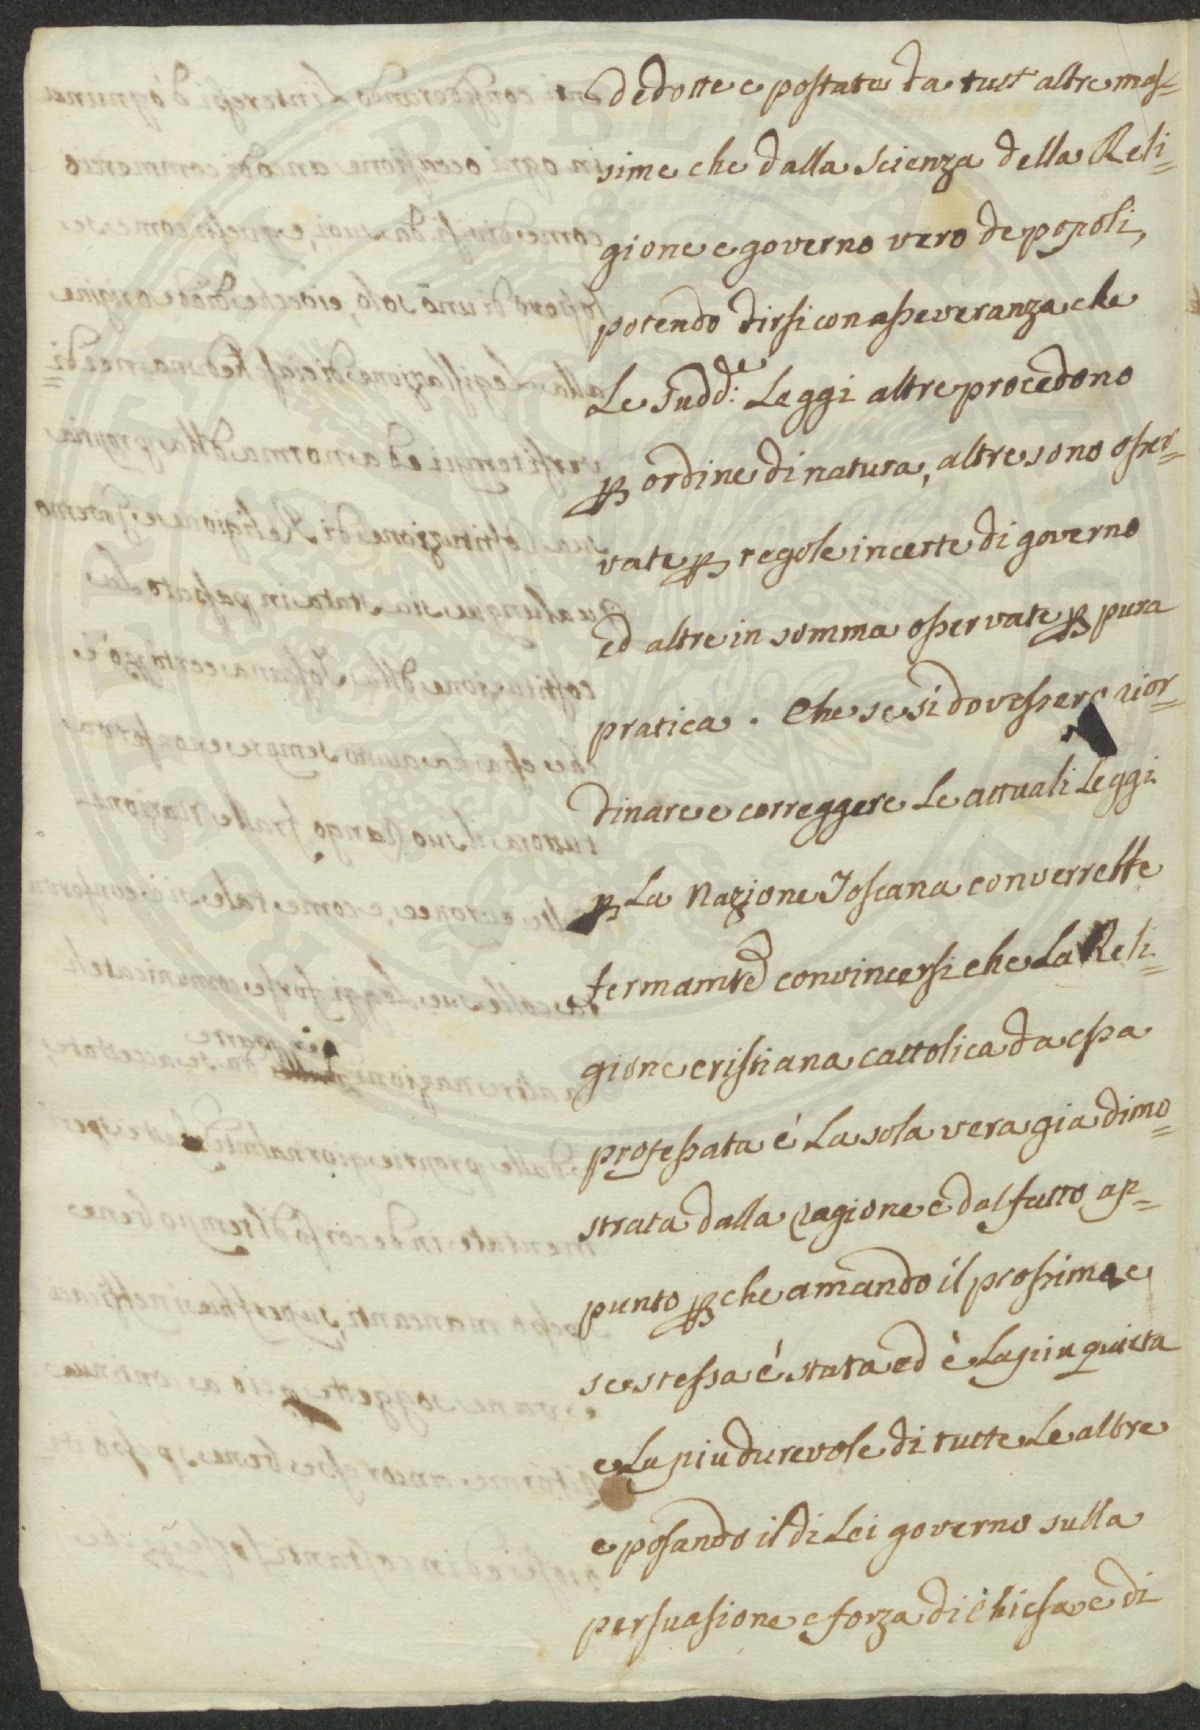 dedotte e postate da tutt' altre mas=
sime che dalla scienza della Reli=
gione e governo vero de popoli,
potendo dirsi con asseveranza che
Le sudd.e Leggi altre procedono
p ordine di natura, altre sono osser=
vate p regole incerte di governo
ed altre in somma osservate p pura
pratica. Che se si dovessero rior=
dinare e correggere Le attuali Leggi
p La Nazione Toscana converrebbe
fermamte convincersi che La Reli=
gione cristiana cattolica da essa
professata é La sola vera gia dimo=
strata dalla ragione e dal fatto ap=
punto p che amando il prossimo e
se stessa é stata ed è La piu quieta
e La piu durevole di tutte Le altre
e posando il di Lei governo sulla
persuasione e forza di Chiesa e di